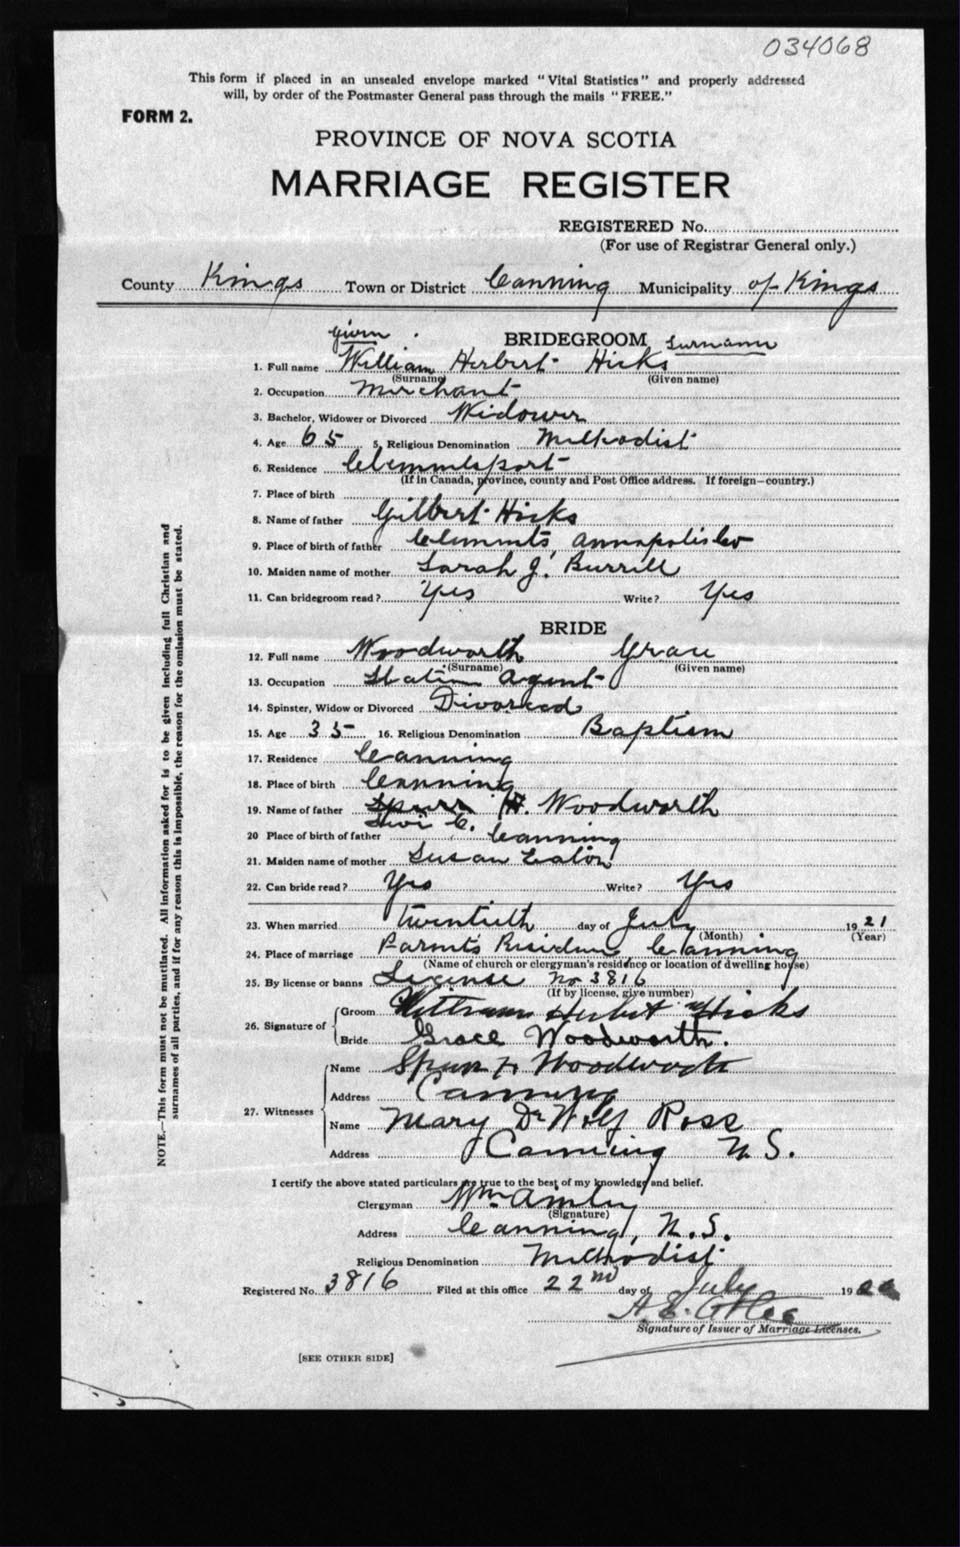 034068
This form if placed in an unsealed envelope marked "Vital Statistics" and properly addressed
will, by order of the Postmaster General pass through the mails "FREE."
FORM 2.
PROVINCE OF NOVA SCOTIA
MARRIAGE REGISTER
REGISTERED No.
(For use of Registrar General only.)
County Kings Town or District Canning Municipality of Kings
given
BRIDEGROOM surname
1. Full name William Herbert Hicks
(Surname) (Given name)
2. Occupation Merchant
3. Bachelor, Widower or Divorced Widower
4. Age 65 5. Religious Denomination Methodist
6. Residence Clementsport
(If in Canada, province, county and Post Office address. If foreign—country.)
7. Place of birth
8. Name of father Gilbert Hicks
9. Place of birth of father Clements, Annapolis Co
10. Maiden name of mother Sarah J. Burrill
11. Can bridegroom read? Yes Write? Yes
BRIDE
12. Full name Woodworth Grace
(Surname) (Given name)
13. Occupation Station Agent
14. Spinster, Widow or Divorced Divorced
15. Age 35 16. Religious Denomination Baptism
17. Residence Canning
18. Place of birth Canning
19. Name of father Spurr H. Woodworth
C.
20 Place of birth of father Canning
21. Maiden name of mother Susan Eaton
22. Can bride read? Yes Write? Yes
23. When married twentieth day of July 1921
(Month) (Year)
24. Place of marriage Parent's Residence Canning
(Name of church or clergyman's residence or location of dwelling house)
25. By license or banns License No 3816
(If by license, give number)
26. Signature of Groom William Herbert Hicks
Bride Grace Woodworth.
27. Witnesses Name Spurr Woodworth
Address Canning
Name Mary DeWolf Ross
Address Canning N. S.
I certify the above stated particulars are true to the best of my knowledge and belief.
Clergyman Wm
(Signature)
Address Canning, N. S.
Religious Denomination Methodist
Registered No. 3816 Filed at this office 22nd day of July 19
A. E.
Signature of Issuer of Marriage Licenses.
[SEE OTHER SIDE]
NOTE.—This form must not be mutilated. All information asked for is to be given including full Christian and
surnames of all parties, and if for any reason this is impossible, the reason for the omission must be stated.